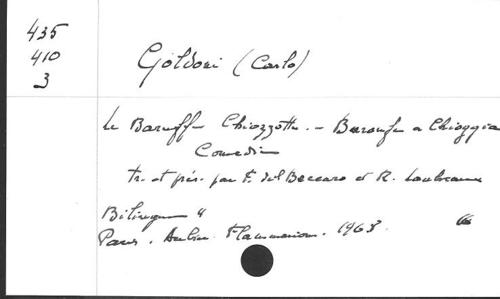 435
410
3
Goldoni (Carlo)
Le Baruffe Chiozzotte. - Barouffe à Chioggia
Comedie
tr. et prés. par F. del Beccaro et R.
Bilingue
Paris, Aubier Flammarion. 1968